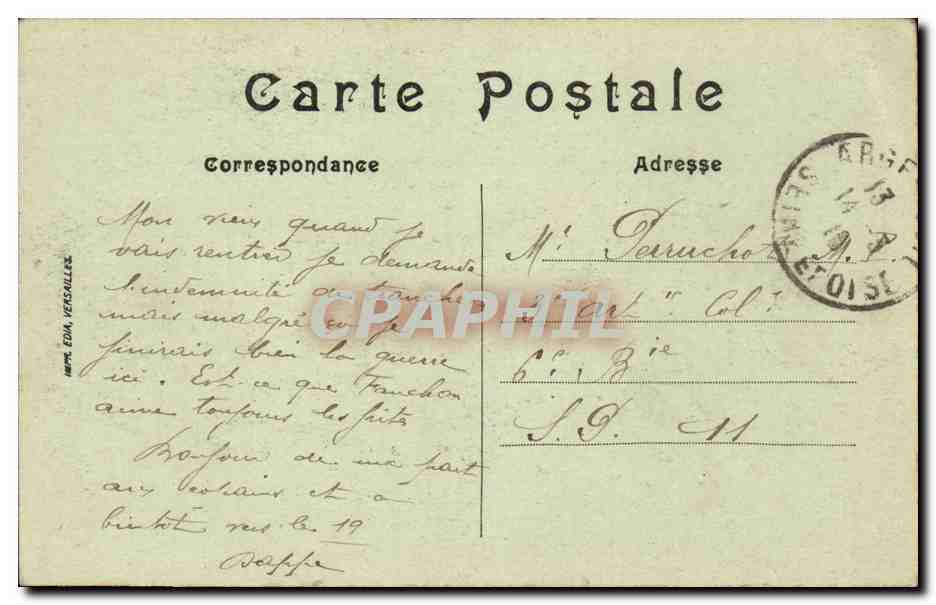 Carte Postale
Correspondance
Adresse
Mon vieux quand je
vais rentrer je demande
l'indemnité de
mais malgré ça je
finirais bien la guerre
ici. Est-ce que Fanchon
aime toujours les frites
Bonjour de ma part
aux copains et à
bientôt vers le 19
Dappe
Mr Perruchot M.F.
3e Art ie Col le
6e Bie
S.P. 11
IMPR. EDIA, VERSAILLES.
ARGE
SEINE ET OISE
13
14 - 3
19
CPARHIL